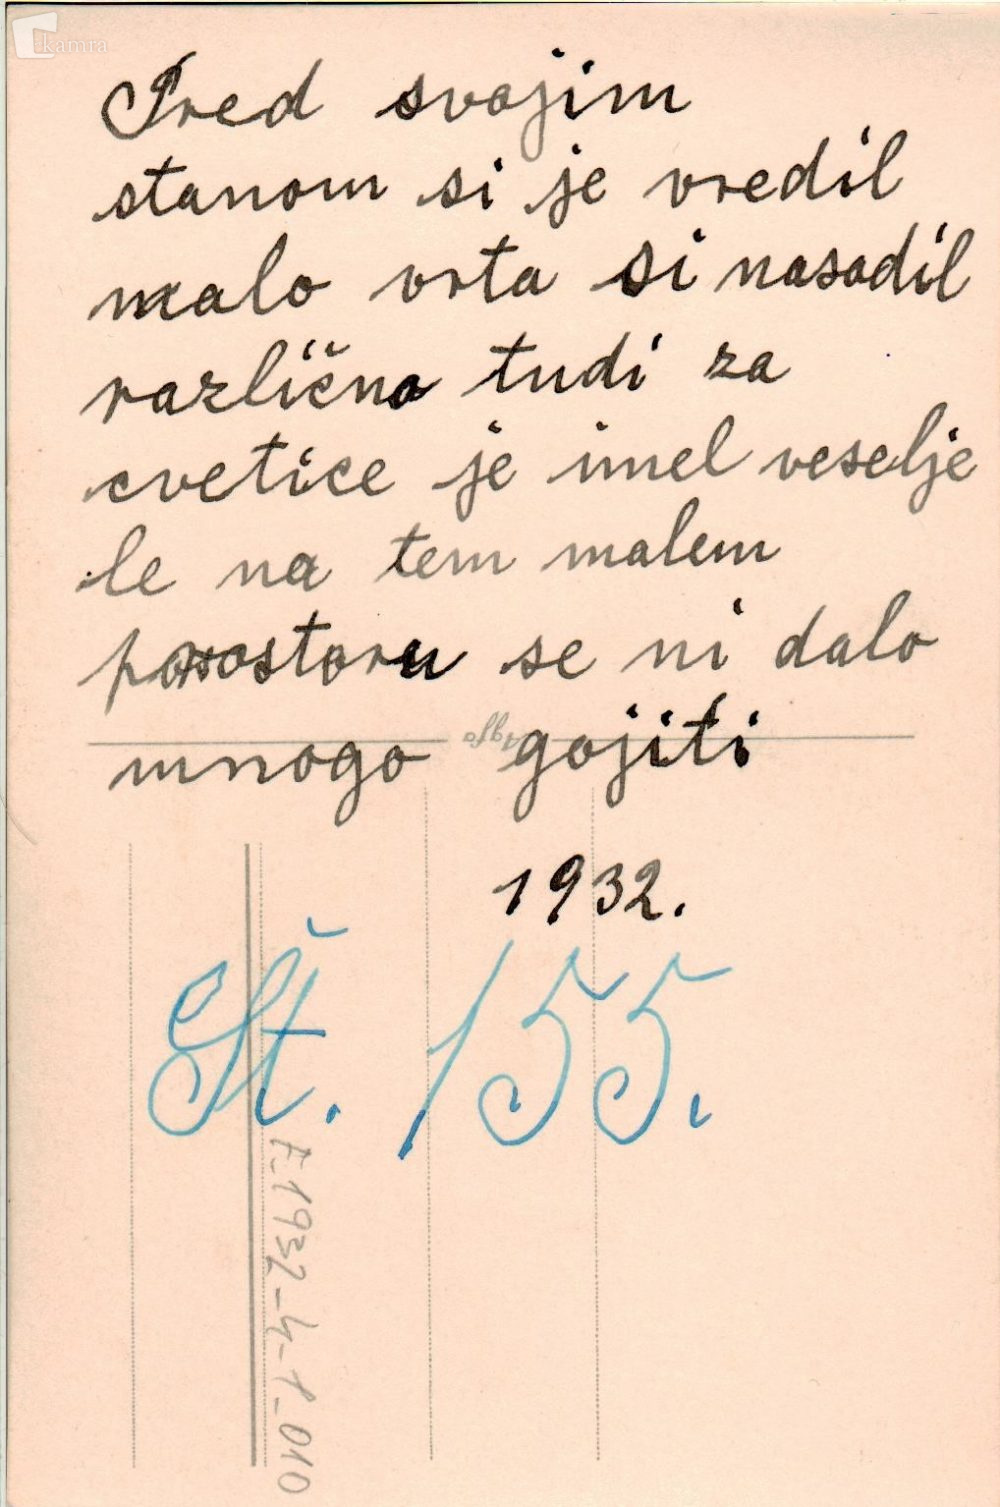 kamra
Pred svojim
stanom si je vredil
malo vrta si nasadil
različno tudi za
cvetice je imel veselje
le na tem malem
prostoru se ni dalo
mnogo gojiti
Agfa
1932.
Št. 155.
F-1932-4-1-010